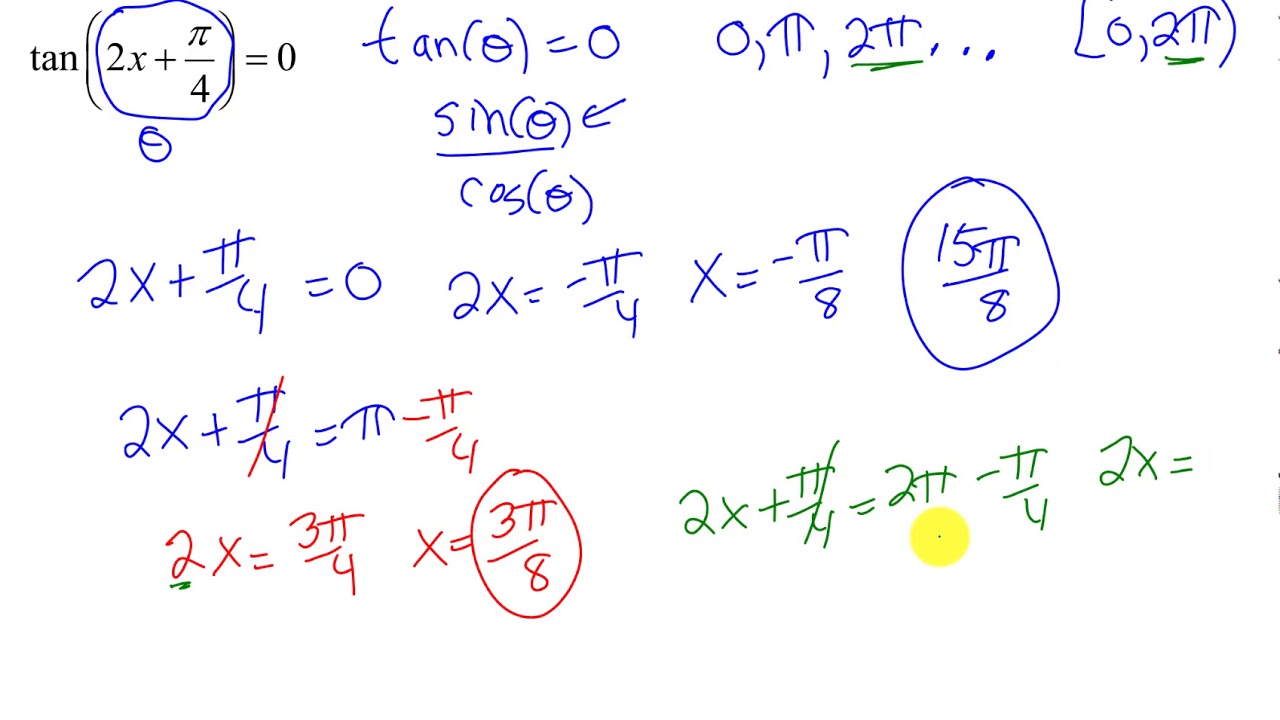 tan(2x + π/4) = 0 tan(θ) = 0 0, π, 2π, ... [0, 2π)
θ sin(θ) ←
cos(θ)
2x + π/4 = 0 2x = -π/4 x = -π/8 15π/8
2x + π/4 = π - π/4
2x + π/4 = 2π - π/4 2x =
2x = 3π/4 x = 3π/8